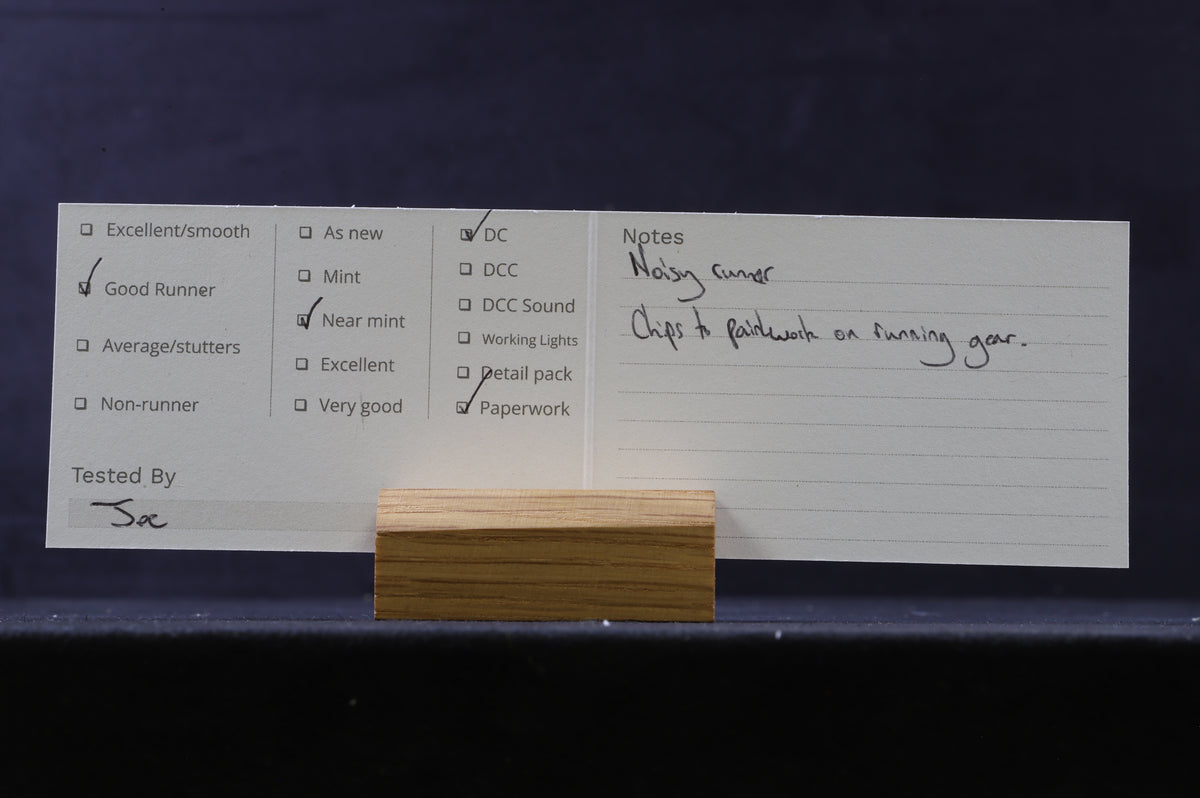 Excellent/smooth
Good Runner
Average/stutters
Non-runner
As new
Mint
Near mint
Excellent
Very good
DC
DCC
DCC Sound
Working Lights
Detail pack
Paperwork
Tested By
Joe
Notes
Noisy runner
Chips to paintwork on running gear.